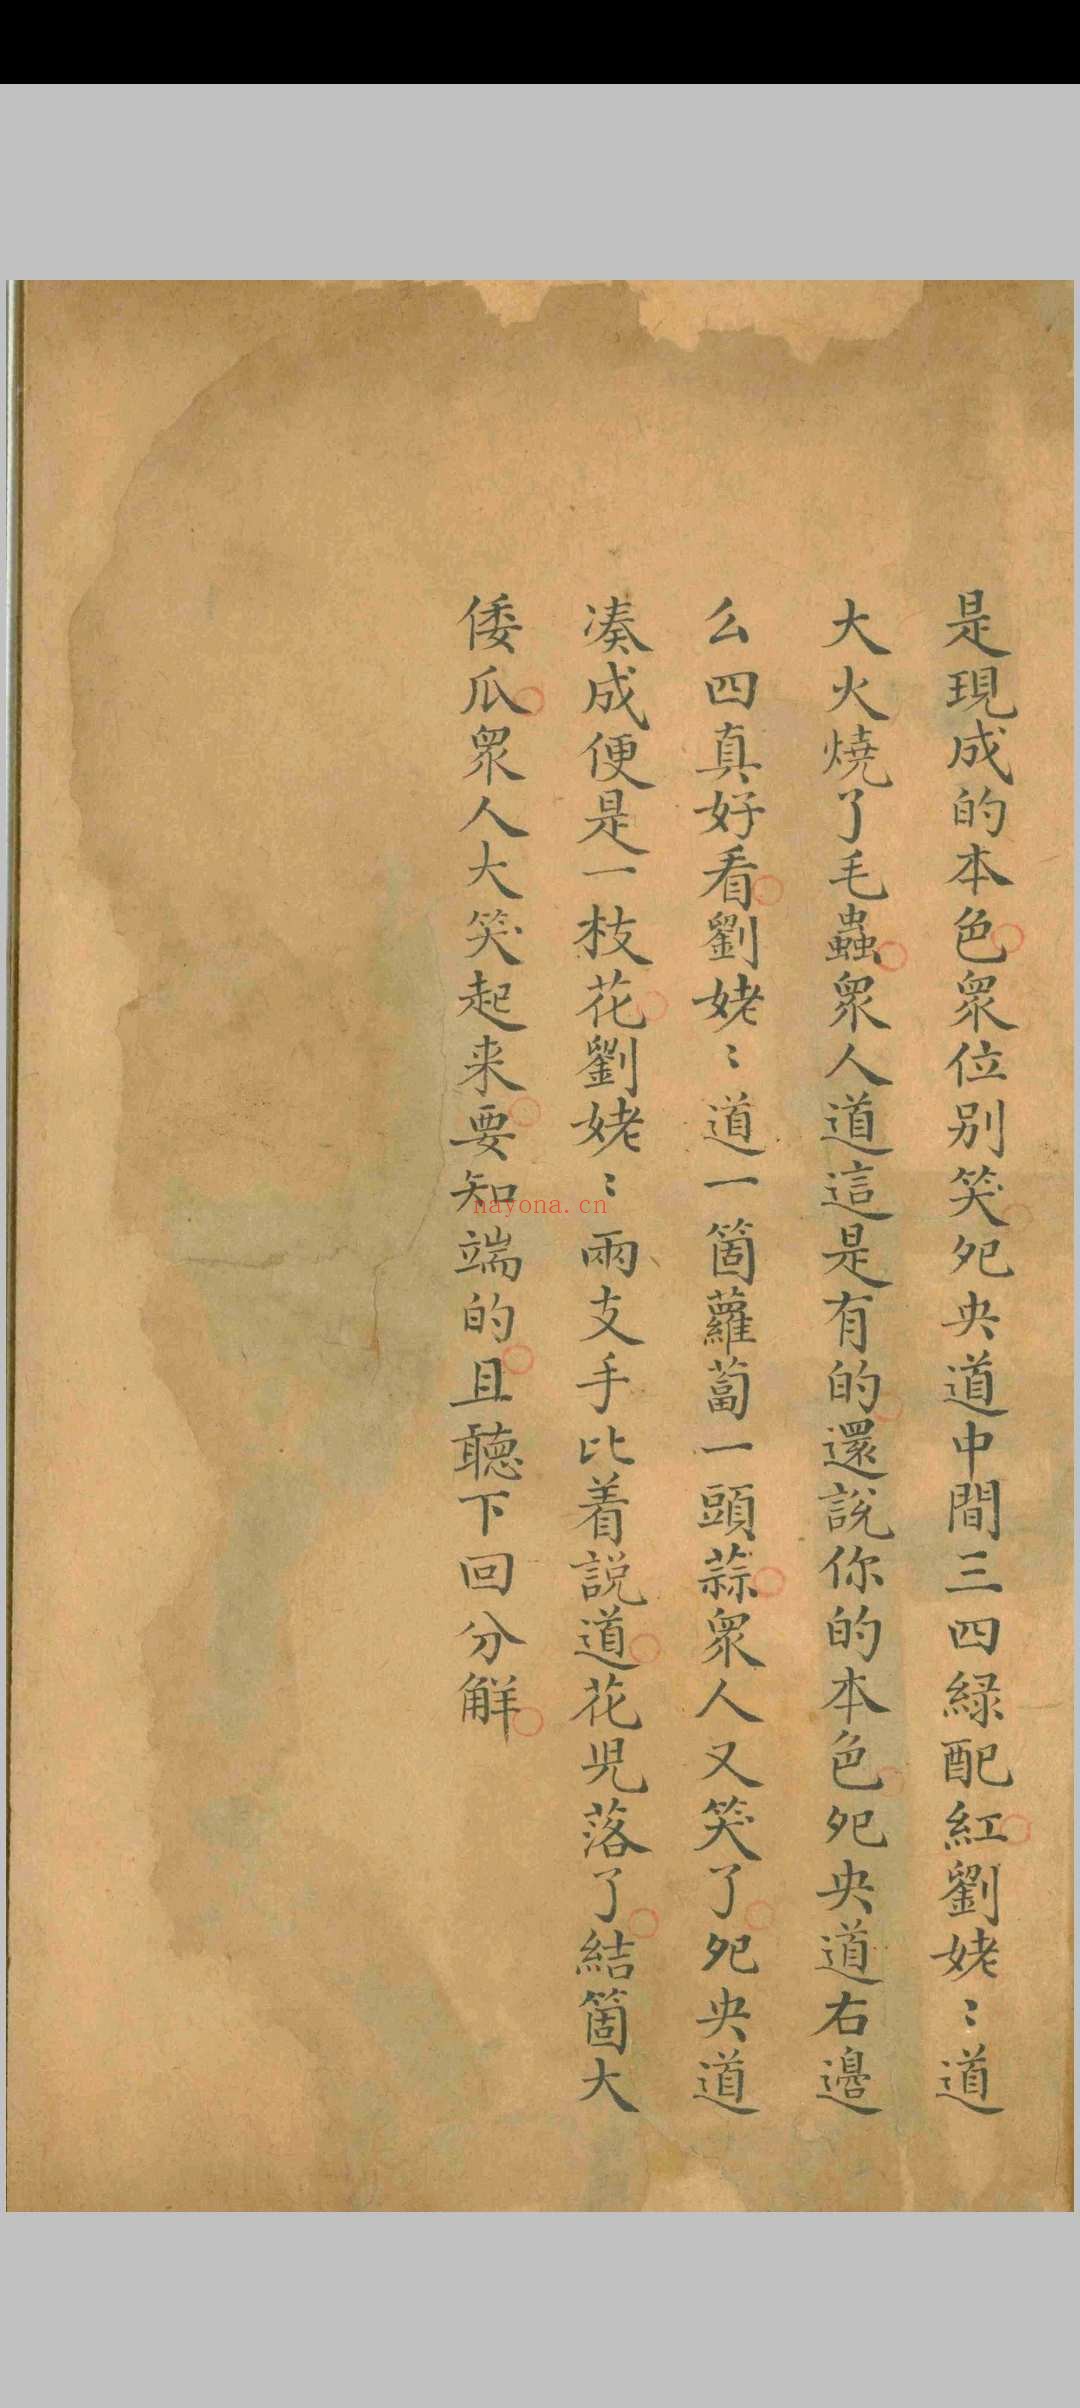 是現成的本色衆位别笑夗央道中間三四緑配紅劉姥〻道
大火燒了毛蟲衆人道這是有的還説你的本色夗央道右邊
么四真好看劉姥〻道一箇蘿蔔一頭蒜衆人又笑了夗央道
凑成便是一枝花劉姥〻兩支手比着説道花児落了結箇大
倭瓜衆人大笑起来要知端的且聽下回分觧
nayona.cn